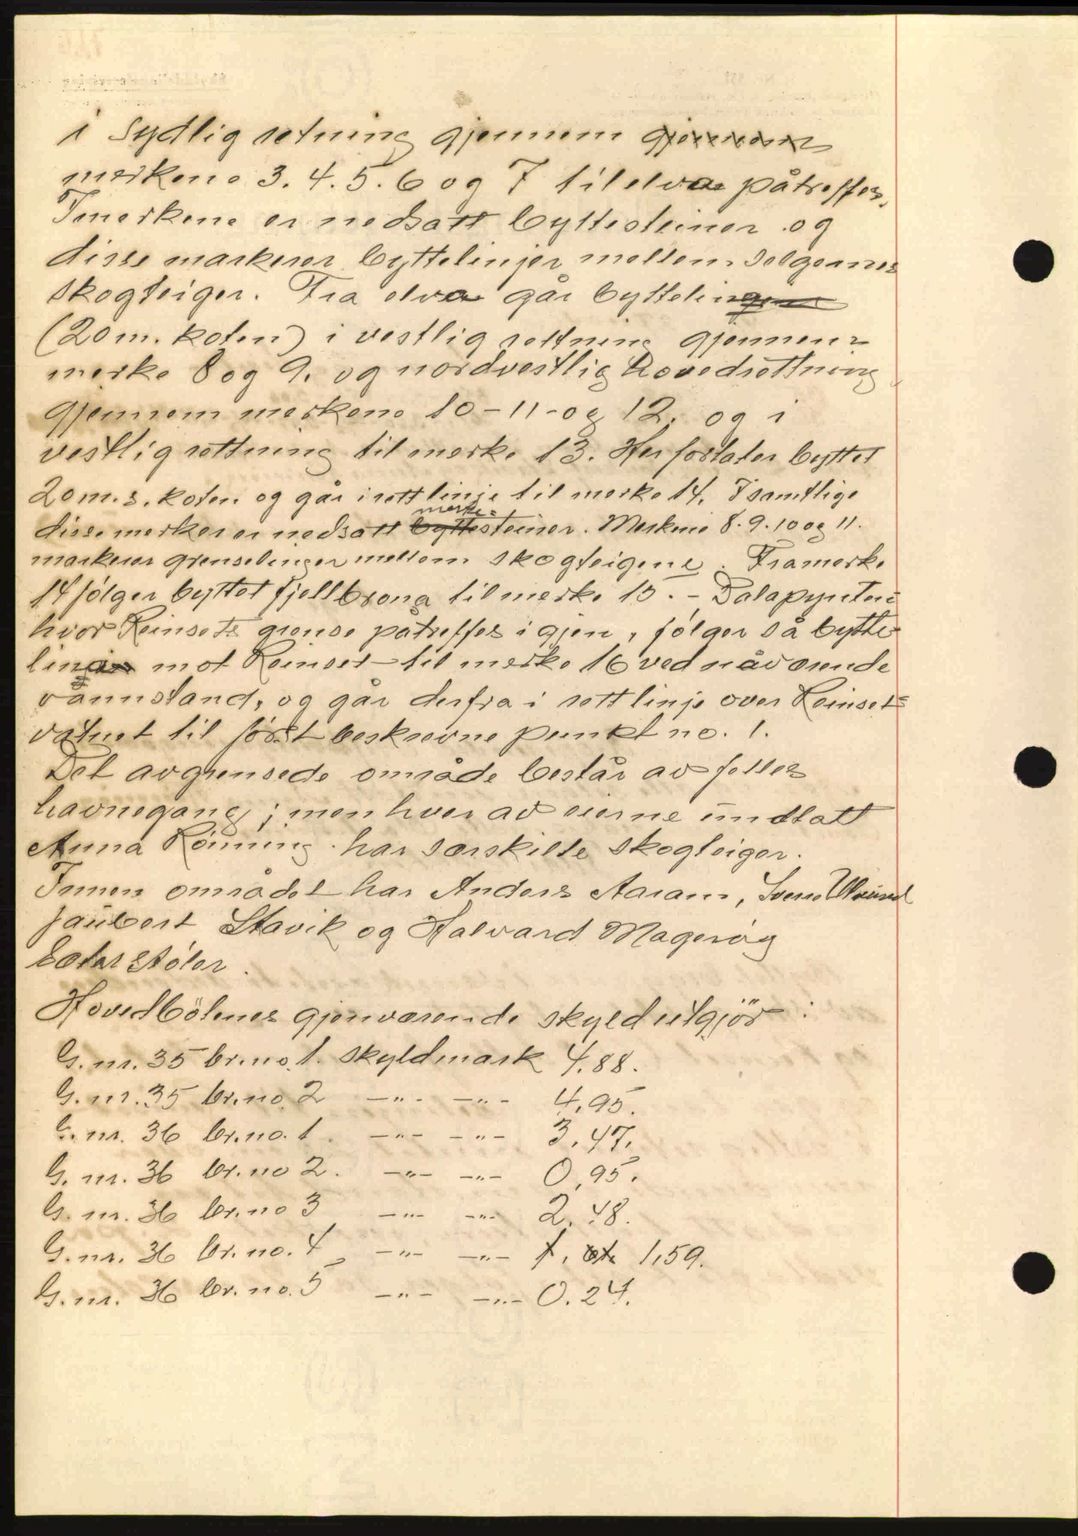 i sydlig retning gjennem gjennem
merkene 3. 4. 5. 6 og 7 til elva påtreffes.
I merkene er nedsatt byttesteiner og
disse markerer byttelinjer mellem selgernes
skogteiger. Fra elva går byttelinjen
(20 m. koten) i vestlig rettning gjennem
merke 8 og 9. og nordvestlig hovedrettning
gjennem merkene 10-11-og 12. og i
vestlig rettning til merke 13. Her forlater byttet
20 m.s. koten og går i rett linje til merke 14. I samtlige
disse merker er nedsatt byttesteiner. Merkene 8. 9. 10 og 11.
merke=
markerer grenselinjer mellem skogteigene. Fra merke
14 følger byttet fjellbrona til merke 15. - Dalapynten=
hvor Reinsets grense påtreffes igjen, følger så bytte-
linjen mot Reinset til merke 16 ved nåværende
vannstand, og går derfra i rett linje over Reinset=
vatnet til først beskrevne punkt no. 1.
Det avgrensede område består av felles
havnegang; men hver av eierne undtatt
Anna Rönning har særskilte skogteiger.
Innen området har Anders Aaram,
Jaübert Stavik og Halvard Magerøy
sæterstøler.
Hovedbölenes gjenværende skyld utgjör:
G. nr. 35 br. no. 1. skyldmark 4.88.
G. nr. 35 br. no. 2 -"- -"- 4,95.
G. nr. 36 br. no. 1. -"- -"- 3.47.
G. nr. 36 br. no 2. -"- -"- 0,95.
G. nr. 36 br. no 3 -"- -"- 2.48.
G. nr. 36 br. no. 4 -"- -"- 1,59.
G. nr. 36 br. no. 5 -"- -"- 0.24.